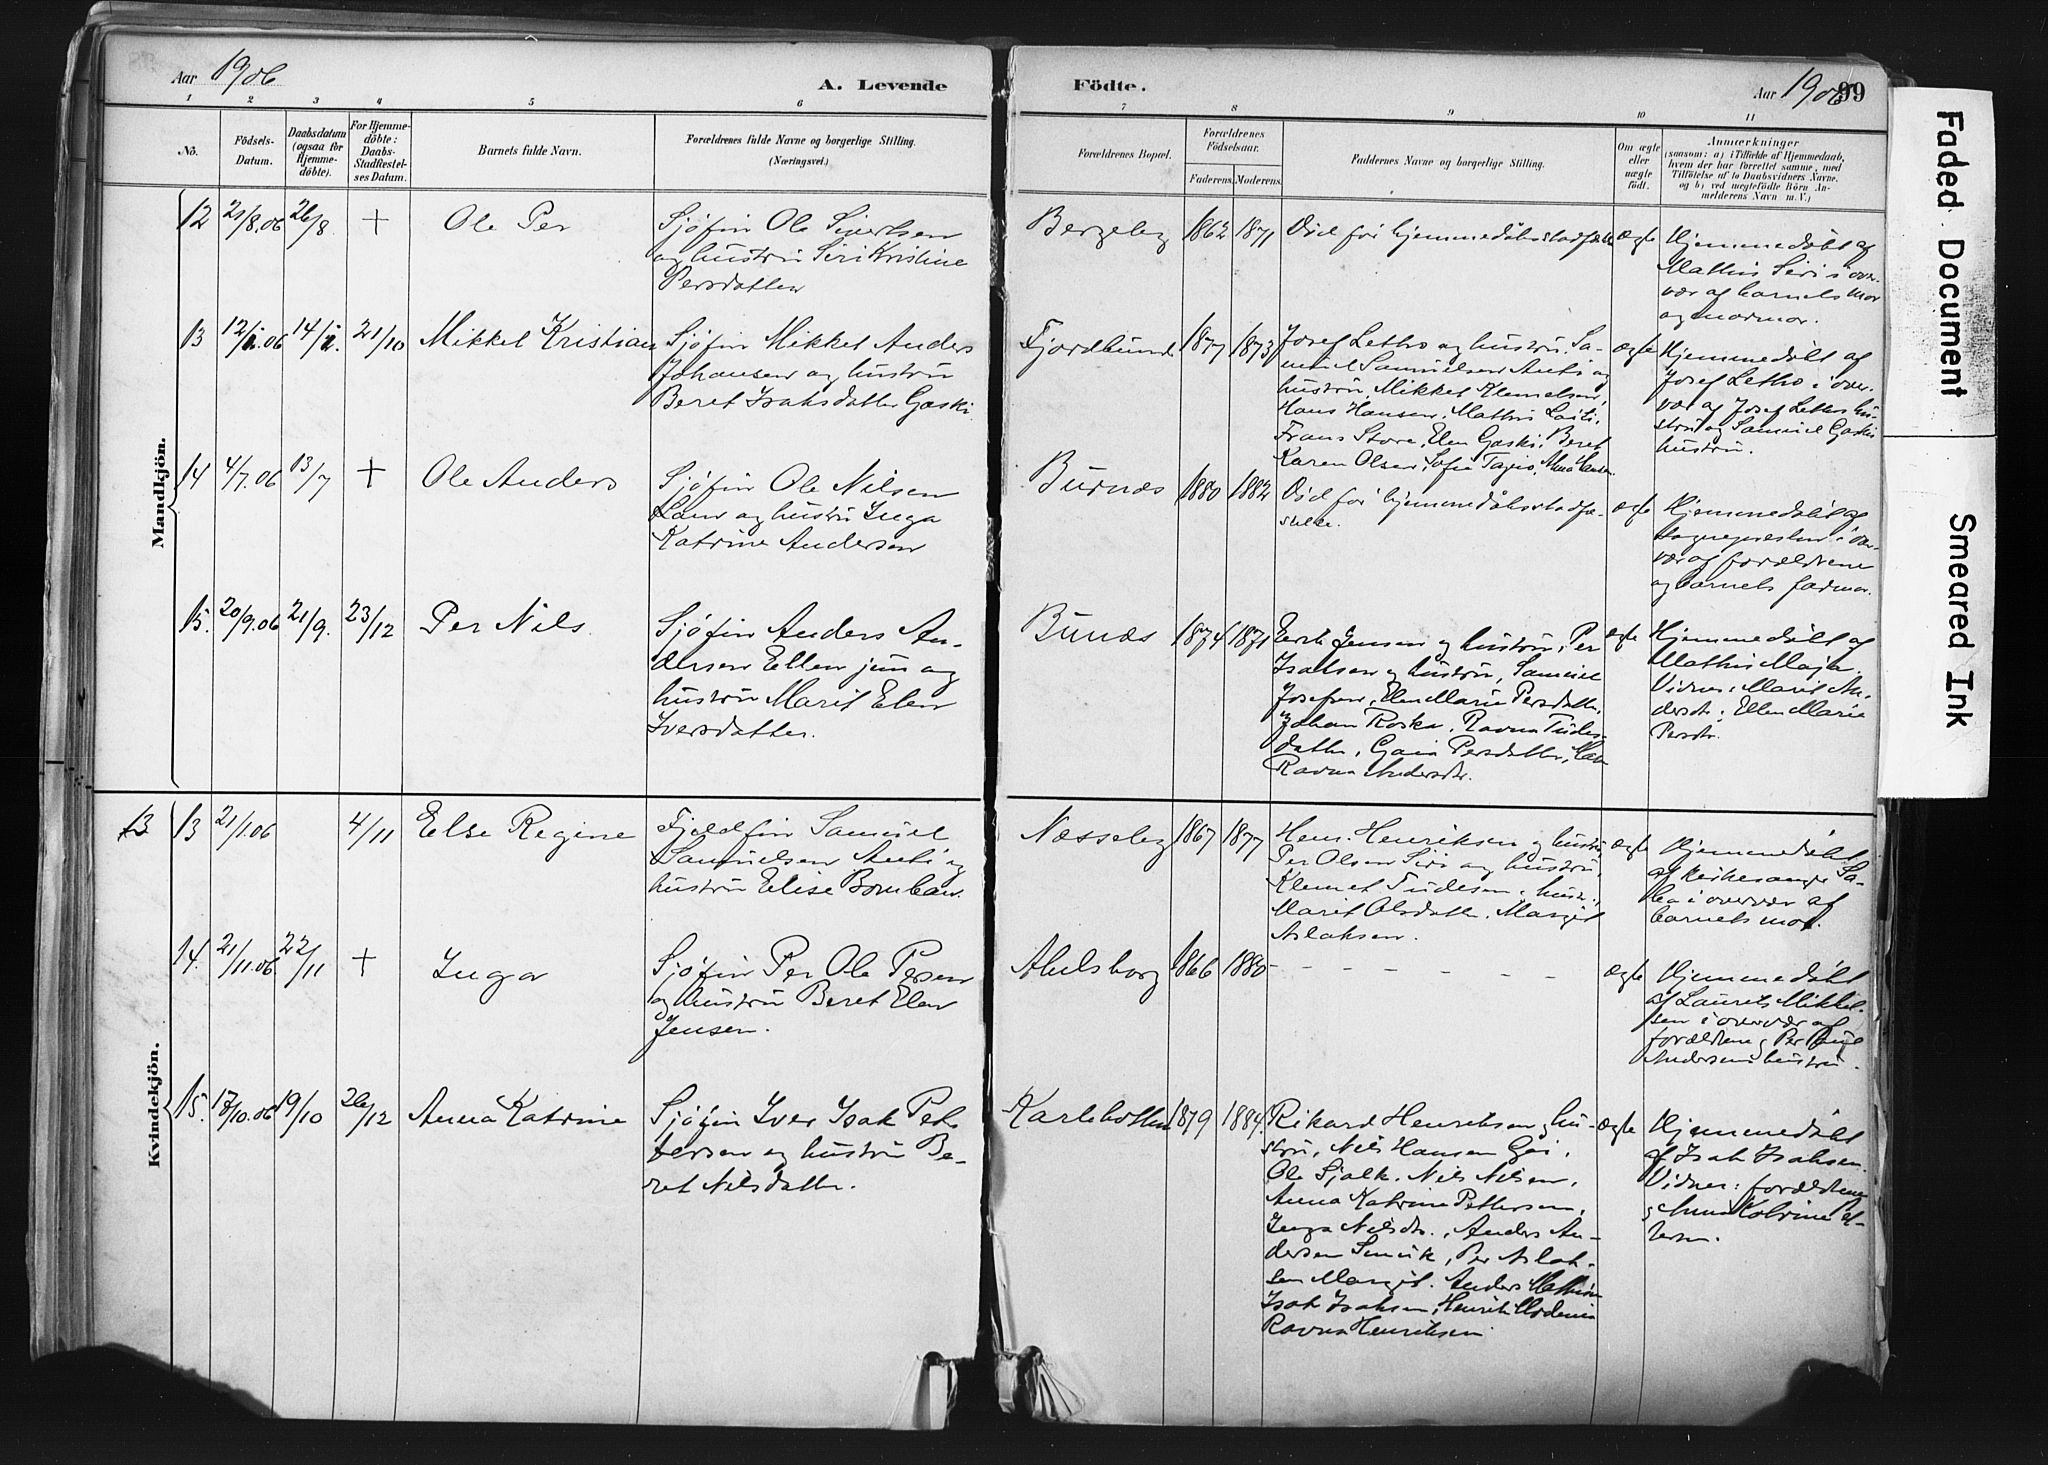 Aar 1906
A. Levende
Fødte.
Aar 1906
99
1 2 3 4 5 6 7 8 9 10 11
No.
Fødsels-
Datum.
Daabsdatum
(ogsaa for
Hjemme-
døbte).
For Hjemme-
døbte:
Daabs-
Stadfæstel-
ses Datum.
Barnets fulde Navn.
Forældrenes fulde Navne og borgerlige Stilling.
(Næringsvei.)
Forældrenes Bopæl.
Forældrenes
Fødselsaar.
Faderens. Moderens.
Faddernes Navne og borgerlige Stilling.
Om ægte
eller
uægte
født.
Anmærkninger
(saasom: a) i Tilfælde af Hjemmedaab,
hvem der har forrettet samme, med
Tilføielse af to Daabsvidners Navne,
og b) ved uægtefødte Børn An-
melderens Navn m. V.)
Mandkjön.
12 21/8.06 26/8 + Ole Per
Sjøfin Ole Sivertsen
og hustru Siri Kristine
Persdatter
Bergeby 1862 1871
Død før hjemmedåbsstadfæst. ægte
Hjemmedøbt af
Mathis Siri i over-
vær af barnets mor
og mormor.
13 14/ 21/10 Mikkel Kristian
Sjøfin Mikkel Anders
Johansen og hustru
Beret Isaksdatter Gaski
Fjordbund 1877 1873
Josef Letho og hustru, Sa-
muel Samuelsen Anti og
hustru, Mikkel Klemetsen,
Hans Hansen, Mathis Laiti,
Frans Store, Elen Gaski, Beret
Karen Olsen, Sofie
ægte
Hjemmedøbt af
Josef Letho i over-
vær af Josef Lethos hu-
stru og Samuel Gaskis
hustru.
14 4/7.06 13/7 + Ole Anders
Sjøfin Ole Nilsen
og hustru Inga
Katrine Andersen
Burnæs 1880 1882
Død før hjemmedåbsstadfæ-
stelse.
ægte
Hjemmedøbt af
sognepresten i over-
vær af forældrene
og barnets farmor.
15. 20/9.06 21/9. 23/12 Per Nils.
Sjøfin Anders An-
dersen Ellen jun og
hustru Marit Elen
Iversdatter.
Bunæs 1874 1871
Jensen og hustru, Per
Isaksen og hustru, Samuel
Josefsen, Elen Marie Persdatter,
Johan Roska, Ravna Tudes-
datter, Persdatter,
Ravna Andersdtr.
ægte
Hjemmedøbt af
Mathis Maja.
Vidner: Marit An-
dersdtr, Ellen Marie
Persdtr.
Kvindekjön.
13 13 21/1.06 4/11 Else Regine
Fjeldfin Samuel
Samuelsen Anti og
hustru Elise
Næsseby 1867 1877
Hans Henriksen og hustru,
Per Olsen Siri og hustru,
Klemet Tudesen, hust.,
Marit Olsdatter, Margit
Aslaksen.
ægte
Hjemmedøbt
af kirkesanger Sa-
ba i overvær af
barnets mor.
14. 21/11.06 22/11 + Inga
Sjøfin Per Ole Persen
og hustru Beret Elen
Jensen.
Abelsborg 1866 1880
- - - - - - - -
ægte
Hjemmedøbt
af Laurits Mikkel-
sen i overvær af
forældrene og Per
Andersens hustru.
15. 17/10.06 19/10 26/12 Anna Katrine
Sjøfin Iver Isak Pet-
tersen og hustru Be-
ret Nilsdatter.
Karlebotten 1879 1884.
Rikard Henriksen og hu-
stru, Nils Hansen
Ole Sjalk, Nils Nilsen,
Anna Katrine Pettersen,
Inga Nilsdtr., Anders An-
dersen Smuk, Per Aslak-
sen Margit. Anders Mathisen
Isak Isaksen, Henrik
Ravna Henriksen
ægte
Hjemmedøbt
af Isak Isaksen.
Vidner: forældrene
og Anna Katrine Pet-
tersen.
Faded Document
Smeared Ink